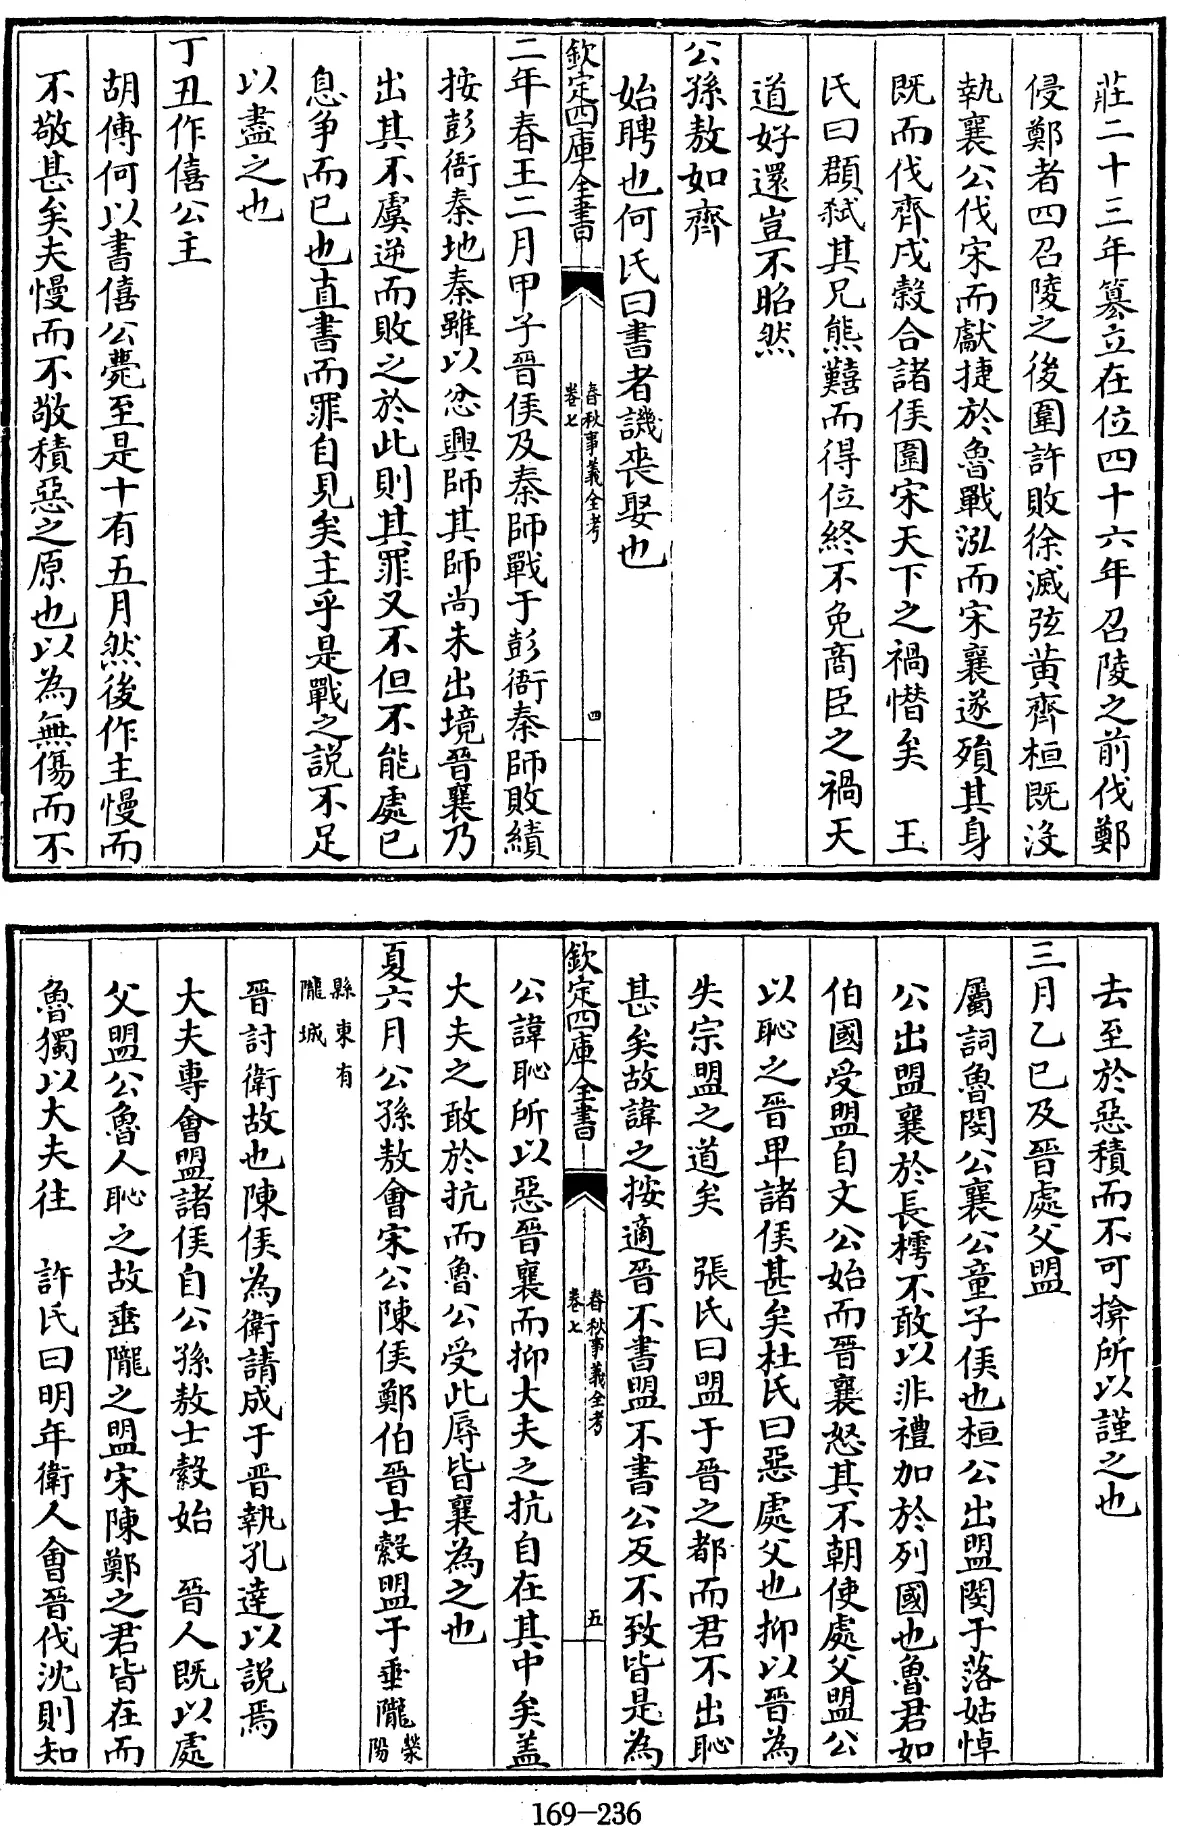 莊二十三年簒立在位四十六年召陵之前伐鄭
侵鄭者四召陵之後圍許敗徐滅弦黄齊桓既沒
執襄公伐宋而獻捷於魯戰泓而宋襄遂殞其身
既而伐齊戍榖合諸侯圍宋天下之禍憯矣　王
氏曰頵弑其兄熊囏而得位終不免商臣之禍天
道好還豈不昭然
公孫敖如齊
始聘也何氏曰書者譏喪娶也
欽定四庫全書
春秋事義全考
卷七
四
二年春王二月甲子晉侯及秦師戰于彭衙秦師敗績
按彭衙秦地秦雖以忿興師其師尚未出境晉襄乃
出其不虞逆而敗之於此則其罪又不但不能處已
息争而已也直書而罪自見矣主乎是戰之説不足
以盡之也
丁丑作僖公主
胡傳何以書僖公薨至是十有五月然後作主慢而
不敬甚矣夫慢而不敬積惡之原也以為無傷而不
去至於惡積而不可揜所以謹之也
三月乙巳及晉處父盟
屬詞魯閔公襄公童子侯也桓公出盟閔于落姑悼
公出盟襄於長樗不敢以非禮加於列國也魯君如
伯國受盟自文公始而晉襄怒其不朝使處父盟公
以恥之晉卑諸侯甚矣杜氏曰惡處父也抑以晉為
失宗盟之道矣　張氏曰盟于晉之都而君不出恥
甚矣故諱之按適晉不書盟不書公反不致皆是為
欽定四庫全書
春秋事義全考
卷七
五
公諱恥所以惡晉襄而抑大夫之抗自在其中矣盖
大夫之敢於抗而魯公受此辱皆襄為之也
夏六月公孫敖會宋公陳侯鄭伯晉士縠盟于垂隴滎陽
縣東有隴城
晉討衛故也陳侯為衛請成于晋執孔達以説焉
大夫專會盟諸侯自公孫敖士縠始　晉人既以處
父盟公魯人恥之故垂隴之盟宋陳鄭之君皆在而
魯獨以大夫往　許氏曰明年衛人會晉伐沈則知
169-236